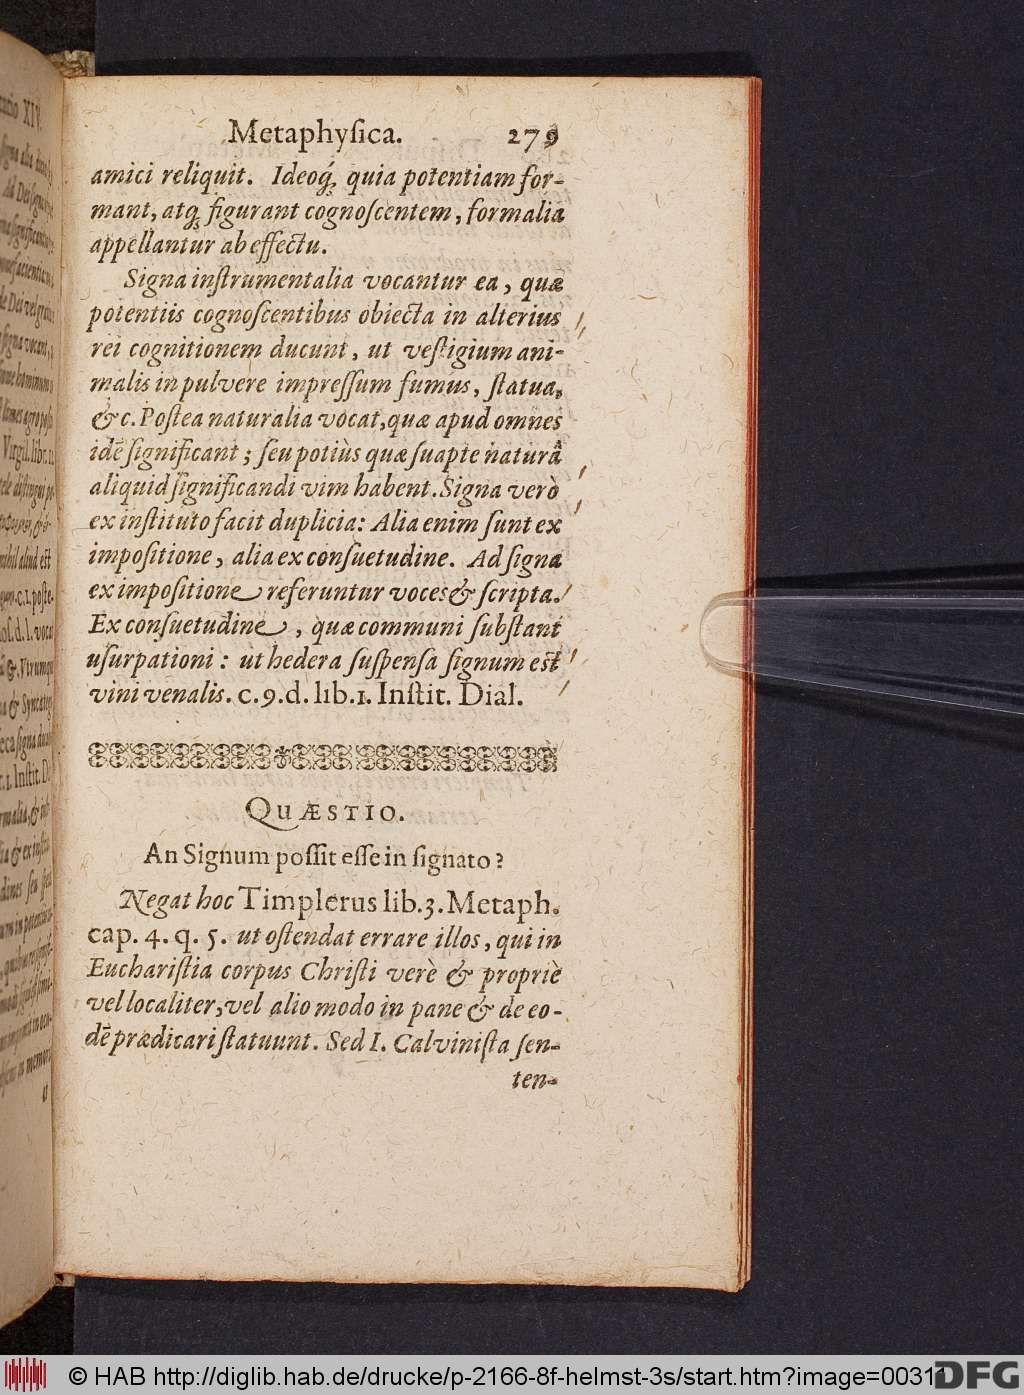 Metaphyſica. 279
amici reliquit. Ideoq́ꝫ quia potentiam for-
mant, atq́ꝫ figurant cognoſcentem, formalia
appellantur ab effectu.
Signa inſtrumentalia vocantur ea, quæ
potentiis cognoſcentibus obiecta in alterius
rei cognitionem ducunt, ut veſtigium ani-
malis in pulvere impreſſum fumus, ſtatua,
&c. Poſtea naturalia vocat, quæ apud omnes
idē ſignificant; ſeu potiùs quæ ſuapte naturâ
aliquid ſignificandi vim habent. Signa verò
ex inſtituto facit duplicia: Alia enim ſunt ex
impoſitione, alia ex conſuetudine. Ad ſigna
ex impoſitione referuntur voces & ſcripta.
Ex conſuetudine, quæ communi ſubſtant
uſurpationi: ut hedera ſuſpenſa ſignum eſt
vini venalis. c.9.d. lib.1. Inſtit. Dial.
QUÆSTIO.
An Signum poſſit eſſe in ſignato?
Negat hoc Timplerus lib.3. Metaph.
cap. 4. q. 5. ut oſtendat errare illos, qui in
Euchariſtia corpus Chriſti verè & propriè
vel localiter, vel alio modo in pane & de eo-
dē prædicari ſtatuunt. Sed I. Calviniſta ſen-
ten-
© HAB http://diglib.hab.de/drucke/p-2166-8f-helmst-3s/start.htm?image=00311
DFG